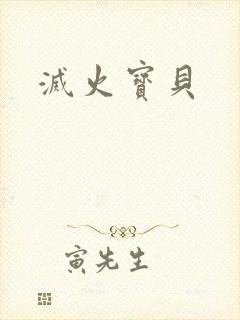 滅火寶貝
寅先生